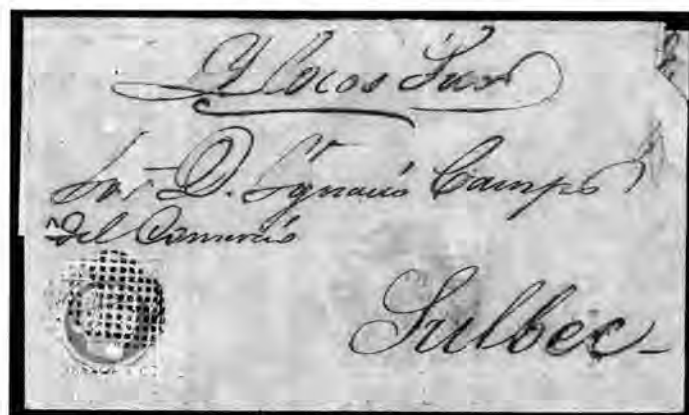 Ylocos Sur
Sor D. Ygnacio Campo
del Comercio
Sulbec